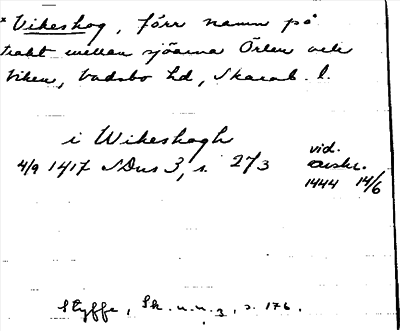 * Vikeshog, förr namn på
trakt mellan sjöarna Örlen och
Viken, Vadsbo hd, Skarab. l.
i Wikeshogh
4/9 1417 SDns 3, s. 273
vid. avskr.
1444 14/6
Styffe, Sk. u. u. 3, s. 176.